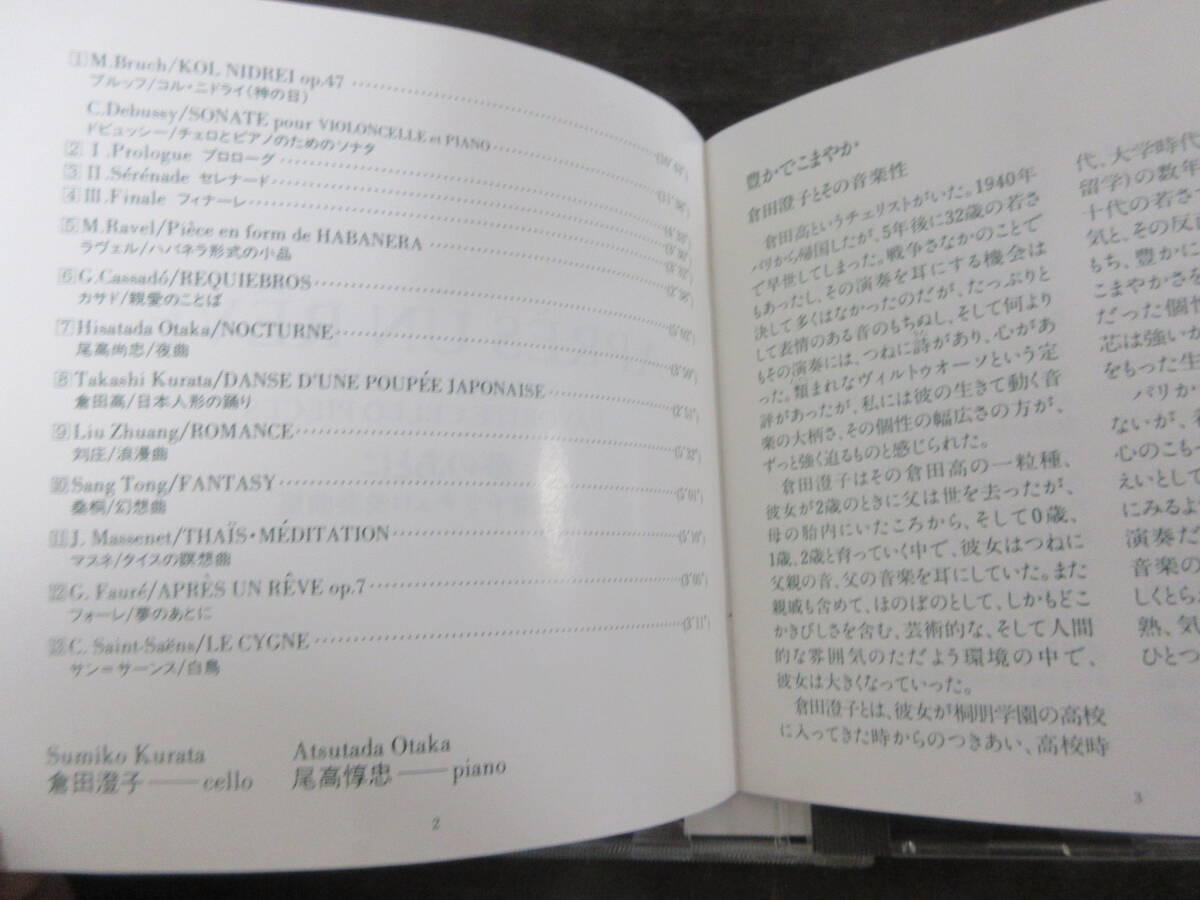 1 M.Bruch/KOL NIDREI op.47
ブルッフ/コル・ニドライ(神の日)
C.Debussy/SONATE pour VIOLONCELLE et PIANO
ドビュッシー/チェロとピアノのためのソナタ
2 I.Prologue プロローグ
3 II.Sérénade セレナード
4 III.Finale フィナーレ
5 M.Ravel/Pièce en form de HABANERA
ラヴェル/ハバネラ形式の小品
6 G.Cassadó/REQUIEBROS
カサド/親愛のことば
7 Hisatada Otaka/NOCTURNE
尾高尚忠/夜曲
8 Takashi Kurata/DANSE D'UNE POUPÉE JAPONAISE
倉田高/日本人形の踊り
9 Liu Zhuang/ROMANCE (5'32")
刘庄/浪漫曲
10 Sang Tong/FANTASY (5'01")
桑桐/幻想曲
11 J. Massenet/THAÏS・MÉDITATION (5'10")
マスネ/タイスの瞑想曲
12 G. Fauré/APRÈS UN RÊVE op.7
フォーレ/夢のあとに
13 C. Saint-Saëns/LE CYGNE (3'11")
サン=サーンス/白鳥
Sumiko Kurata
倉田澄子――cello
Atsutada Otaka
尾高惇忠――piano
2
豊かでこまやか
倉田澄子とその音楽性
倉田高というチェリストがいた。1940年
パリから帰国したが、5年後に32歳の若さ
で早世してしまった。戦争さなかのことで
もあったし、その演奏を耳にする機会は
決して多くはなかったのだが、たっぷりと
して表情のある音のもちぬし、そして何より
もその演奏には、つねに詩があり、心があ
った。類まれなヴィルトゥオーソという定
評があったが、私には彼の生きて動く音
楽の大柄さ、その個性の幅広さの方が、
ずっと強く迫るものと感じられた。
倉田澄子はその倉田高の一粒種、
彼女が2歳のときに父は世を去ったが、
母の胎内にいたころから、そして0歳、
1歳、2歳と育っていく中で、彼女はつねに
父親の音、父の音楽を耳にしていた。また
親戚も含めて、ほのぼのとして、しかもどこ
かきびしさを含む、芸術的な、そして人間
的な雰囲気のただよう環境の中で、
彼女は大きくなっていった。
倉田澄子とは、彼女が桐朋学園の高校
に入ってきた時からのつきあい、高校時
代、大学時代
留学)の数年
十代の若さ
気と、その反
もち、豊かに
こまやかさを
だった個性
芯は強いか
をもった生
パリか
ないが、
心のこも
えいとして
にみるよ
演奏だ
音楽の
しくとら
熟、気
ひとつ
3